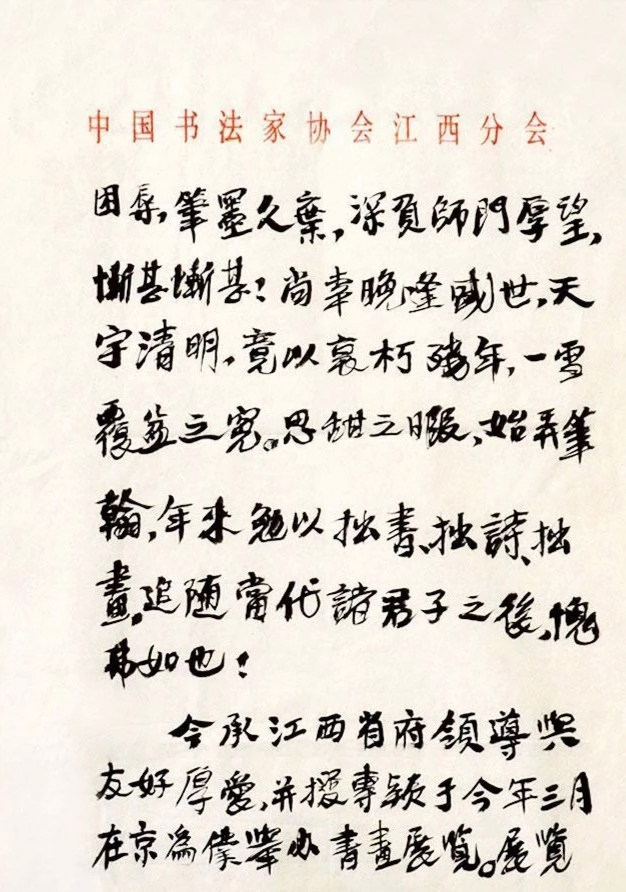 中国书法家协会江西分会
困染,筆墨久棄,深負師門厚望,
慚甚慚甚!尚幸晚逢盛世,天
宇清明,竟以衰朽殘年,一雪
覆盆之冤。思甜之暇,始弄筆
翰,年来勉以拙書、拙詩、拙
畫,追随當代諸君子之後,愧
弗如也!
今承江西省府領導與
友好厚愛,并撥專款于今年三月
在京為僕舉办書畫展覧。展覧